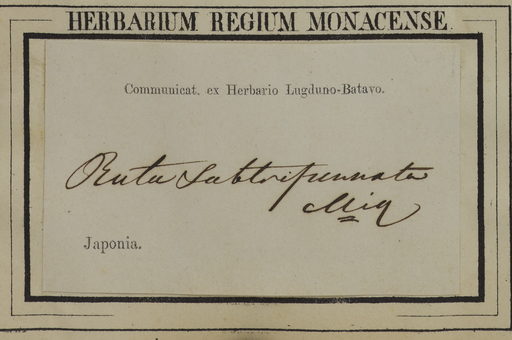 HERBARIUM REGIUM MONACENSE.
Communicat. ex Herbario Lugduno-Batavo.
Ruta subtripennata
Miq
Japonia.